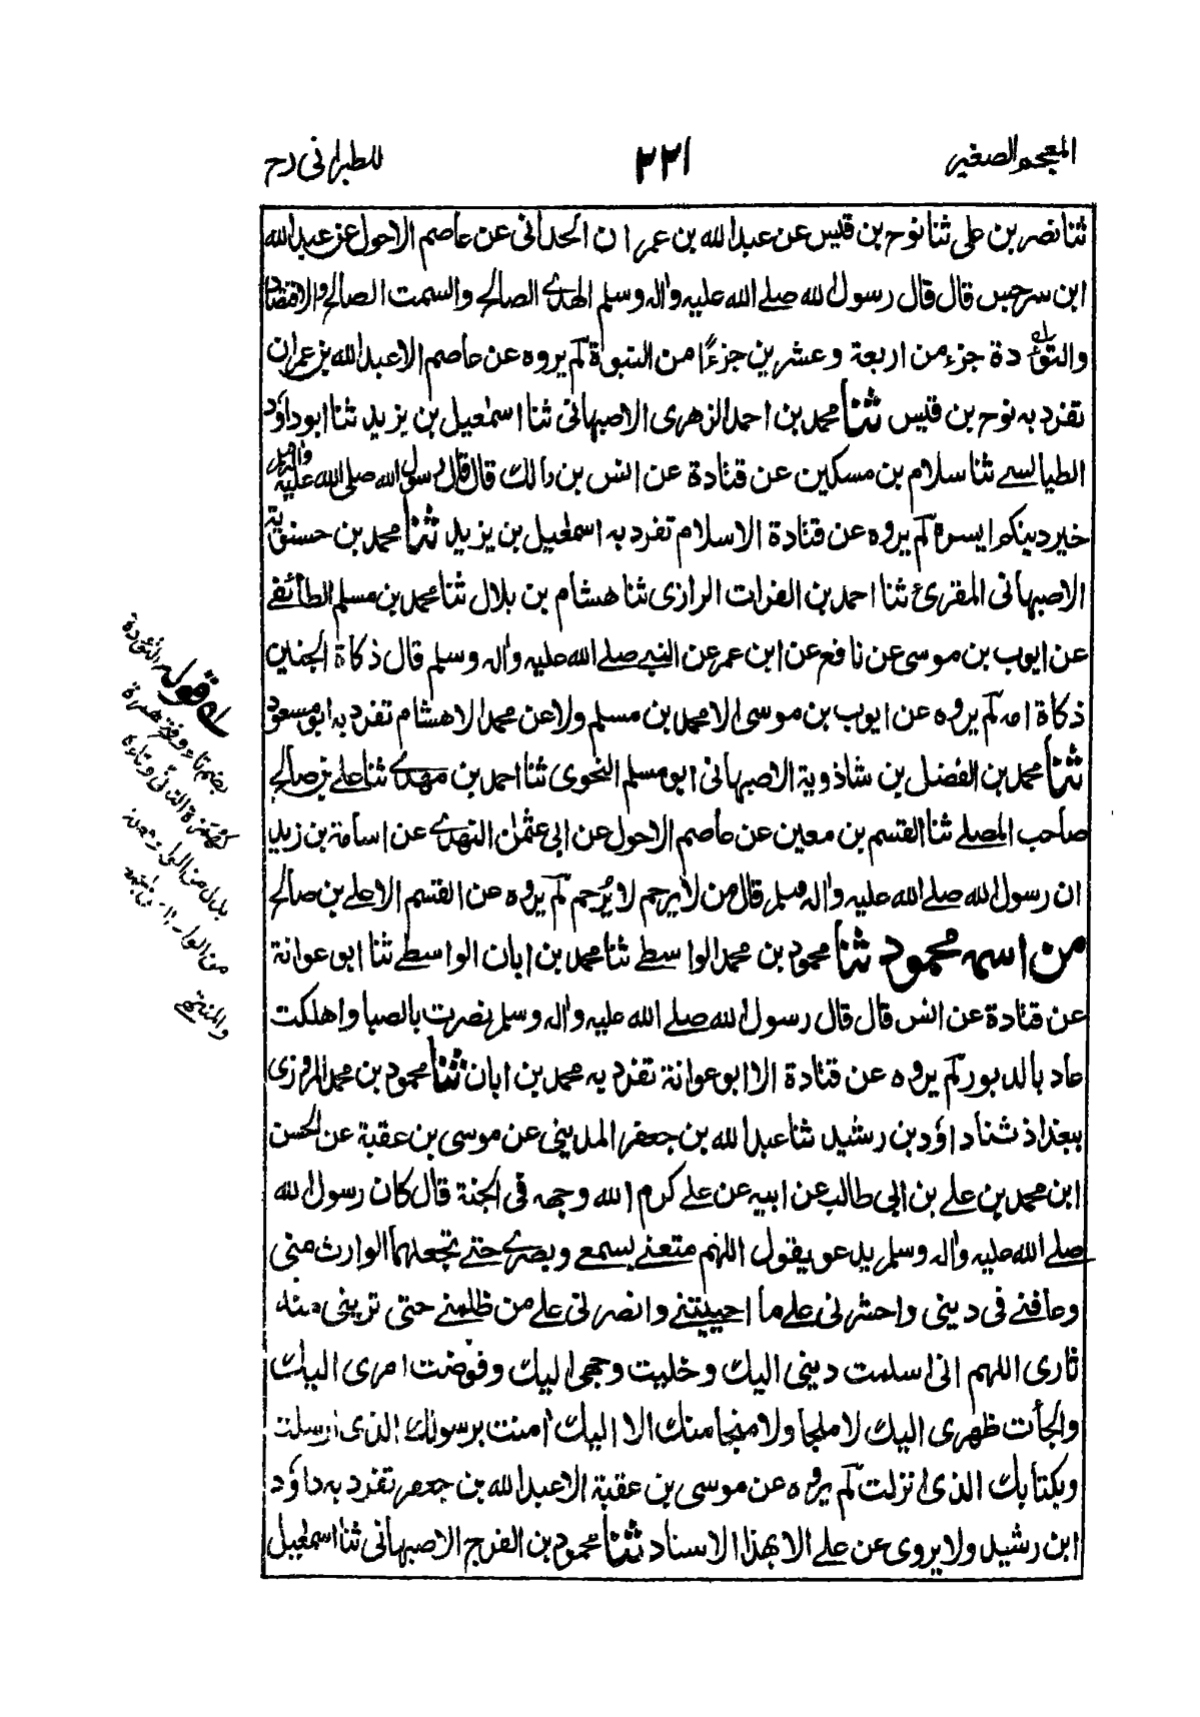 المعجم الصغير
٢٢١
للطبرانی رح
ثنا نصر بن علی ثنا نوح بن قیس عن عبد الله بن عمران الحدانی عن عاصم الاحول عن عبد الله
ابن سرجس قال قال رسول الله صلے الله علیه واله وسلم الهدے الصالح والسمت الصالح والاقتصاد
والتؤدة جزء من اربعة وعشرین جزءًا من النبوة لم یروه عن عاصم الا عبد الله بن عمران
تفرد به نوح بن قیس ثنا محمد بن احمد الزهری الاصبهانی ثنا اسمٰعیل بن یزید ثنا ابو داؤد
الطیالسے ثنا سلام بن مسکین عن قتادة عن انس بن مالك قال قال رسول الله صلی الله علیه واله وسلم
خیر دینکم ایسره لم یروه عن قتادة الا سلام تفرد به اسمٰعیل بن یزید ثنا محمد بن حسنویة
الاصبهانی المقرئ ثنا احمد بن الفرات الرازی ثنا هشام بن بلال ثنا محمد بن مسلم الطائفے
عن ایوب بن موسی عن نافع عن ابن عمر عن النبے صلے الله علیه واله وسلم قال ذکاة الجنین
ذکاة امه لم یروه عن ایوب بن موسی الا محمد بن مسلم ولا عن محمد الا هشام تفرد به ابو مسعود
ثنا محمد بن الفضل بن شاذویة الاصبهانی ابو مسلم النحوی ثنا احمد بن مهدے ثنا علے بن صالح
صاحب المصلے ثنا القسم بن معین عن عاصم الاحول عن ابی عثمٰن النهدے عن اسامة بن زید
ان رسول الله صلے الله علیه واله وسلم قال من لا یرحم لا یُرحم لم یروه عن القسم الا علے بن صالح
من اسمه محمود ثنا محمود بن محمد الواسطے ثنا محمد بن ابان الواسطے ثنا ابو عوانة
عن قتادة عن انس قال قال رسول الله صلے الله علیه واله وسلم نصرت بالصبا واهلکت
عاد بالدبور لم یروه عن قتادة الا ابو عوانة تفرد به محمد بن ابان ثنا محمود بن محمد المروزی
ببغداذ ثنا داؤد بن رشید ثنا عبد الله بن جعفر المدینی عن موسی بن عقبة عن الحسن
ابن محمد بن علے بن ابی طالب عن ابیه عن علے کرم الله وجهه فی الجنة قال کان رسول الله
صلے الله علیه واله وسلم یدعو یقول اللهم متعنے بسمعے وبصرے حتے تجعلهما الوارث منی
وعافنے فی دینی واحشرنی علے ما احییتنے وانصرنی علے من ظلمنے حتی ترینی منه
ثاری اللهم انی اسلمت دینی الیك وخلیت وجهی الیك وفوضت امری الیك
والجأت ظهری الیك لا ملجا ولا منجا منك الا الیك اٰمنت برسولك الذی ارسلت
وبکتابك الذی انزلت لم یروه عن موسی بن عقبة الا عبد الله بن جعفر تفرد به داؤد
ابن رشید ولا یروی عن علے الا بهذا الاسناد ثنا محمود بن الفرج الاصبهانی ثنا اسمٰعیل
قوله التؤدة
بضم تاء وفتح همزة
التأنی وتاؤه
بدل من الواو
من الواو